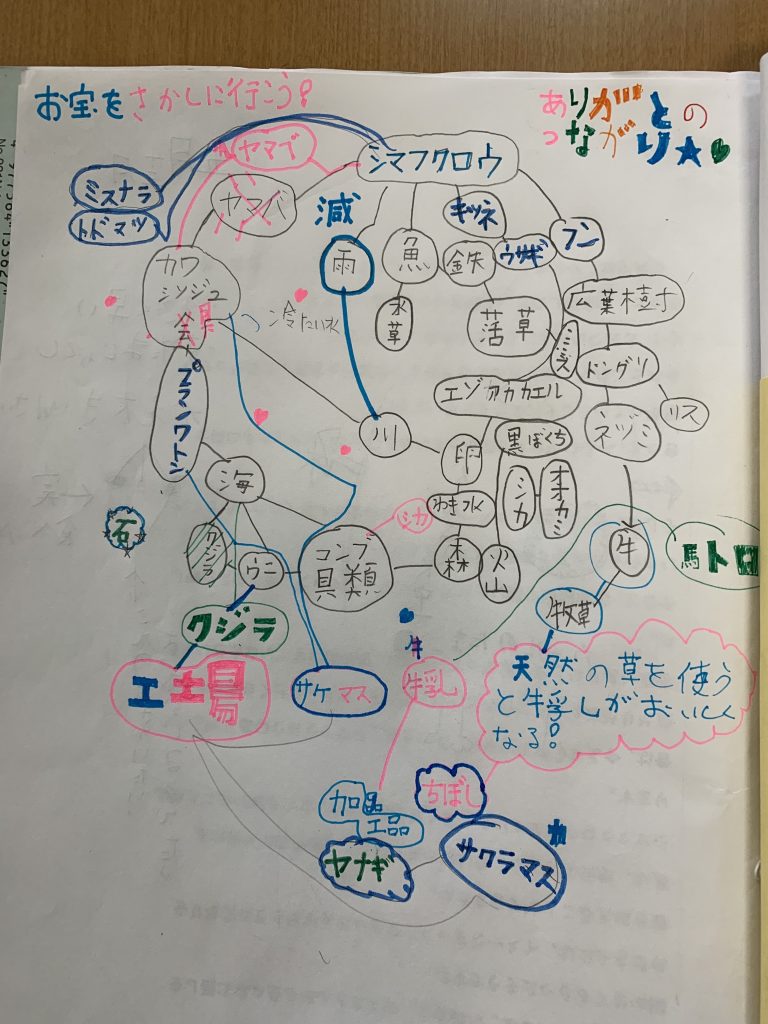 お宝をさがしに行こう!
ありがとの
つながり★
ヤマベ
シマフクロウ
ミズナラ
トドマツ
ヤマバ
減
キツネ
ウサギ
フン
カワ
シンジュ
会
雨
魚
鉄
広葉樹
冷たい水
水草
落草
ミミズ
ドングリ
リス
プランクトン
エゾアカガエル
ネズミ
川
卵
黒ぼくち
シカ
オオカミ
海
わき水
シカ
石
クジラ
ウニ
コンブ
貝類
森
火山
牛
馬トロ
クジラ
牧草
工場
サケマス
牛
牛乳
天然の草を使う
と牛乳がおいしく
なる!
加工品
ちぼし
ヤナギ
サクラマス